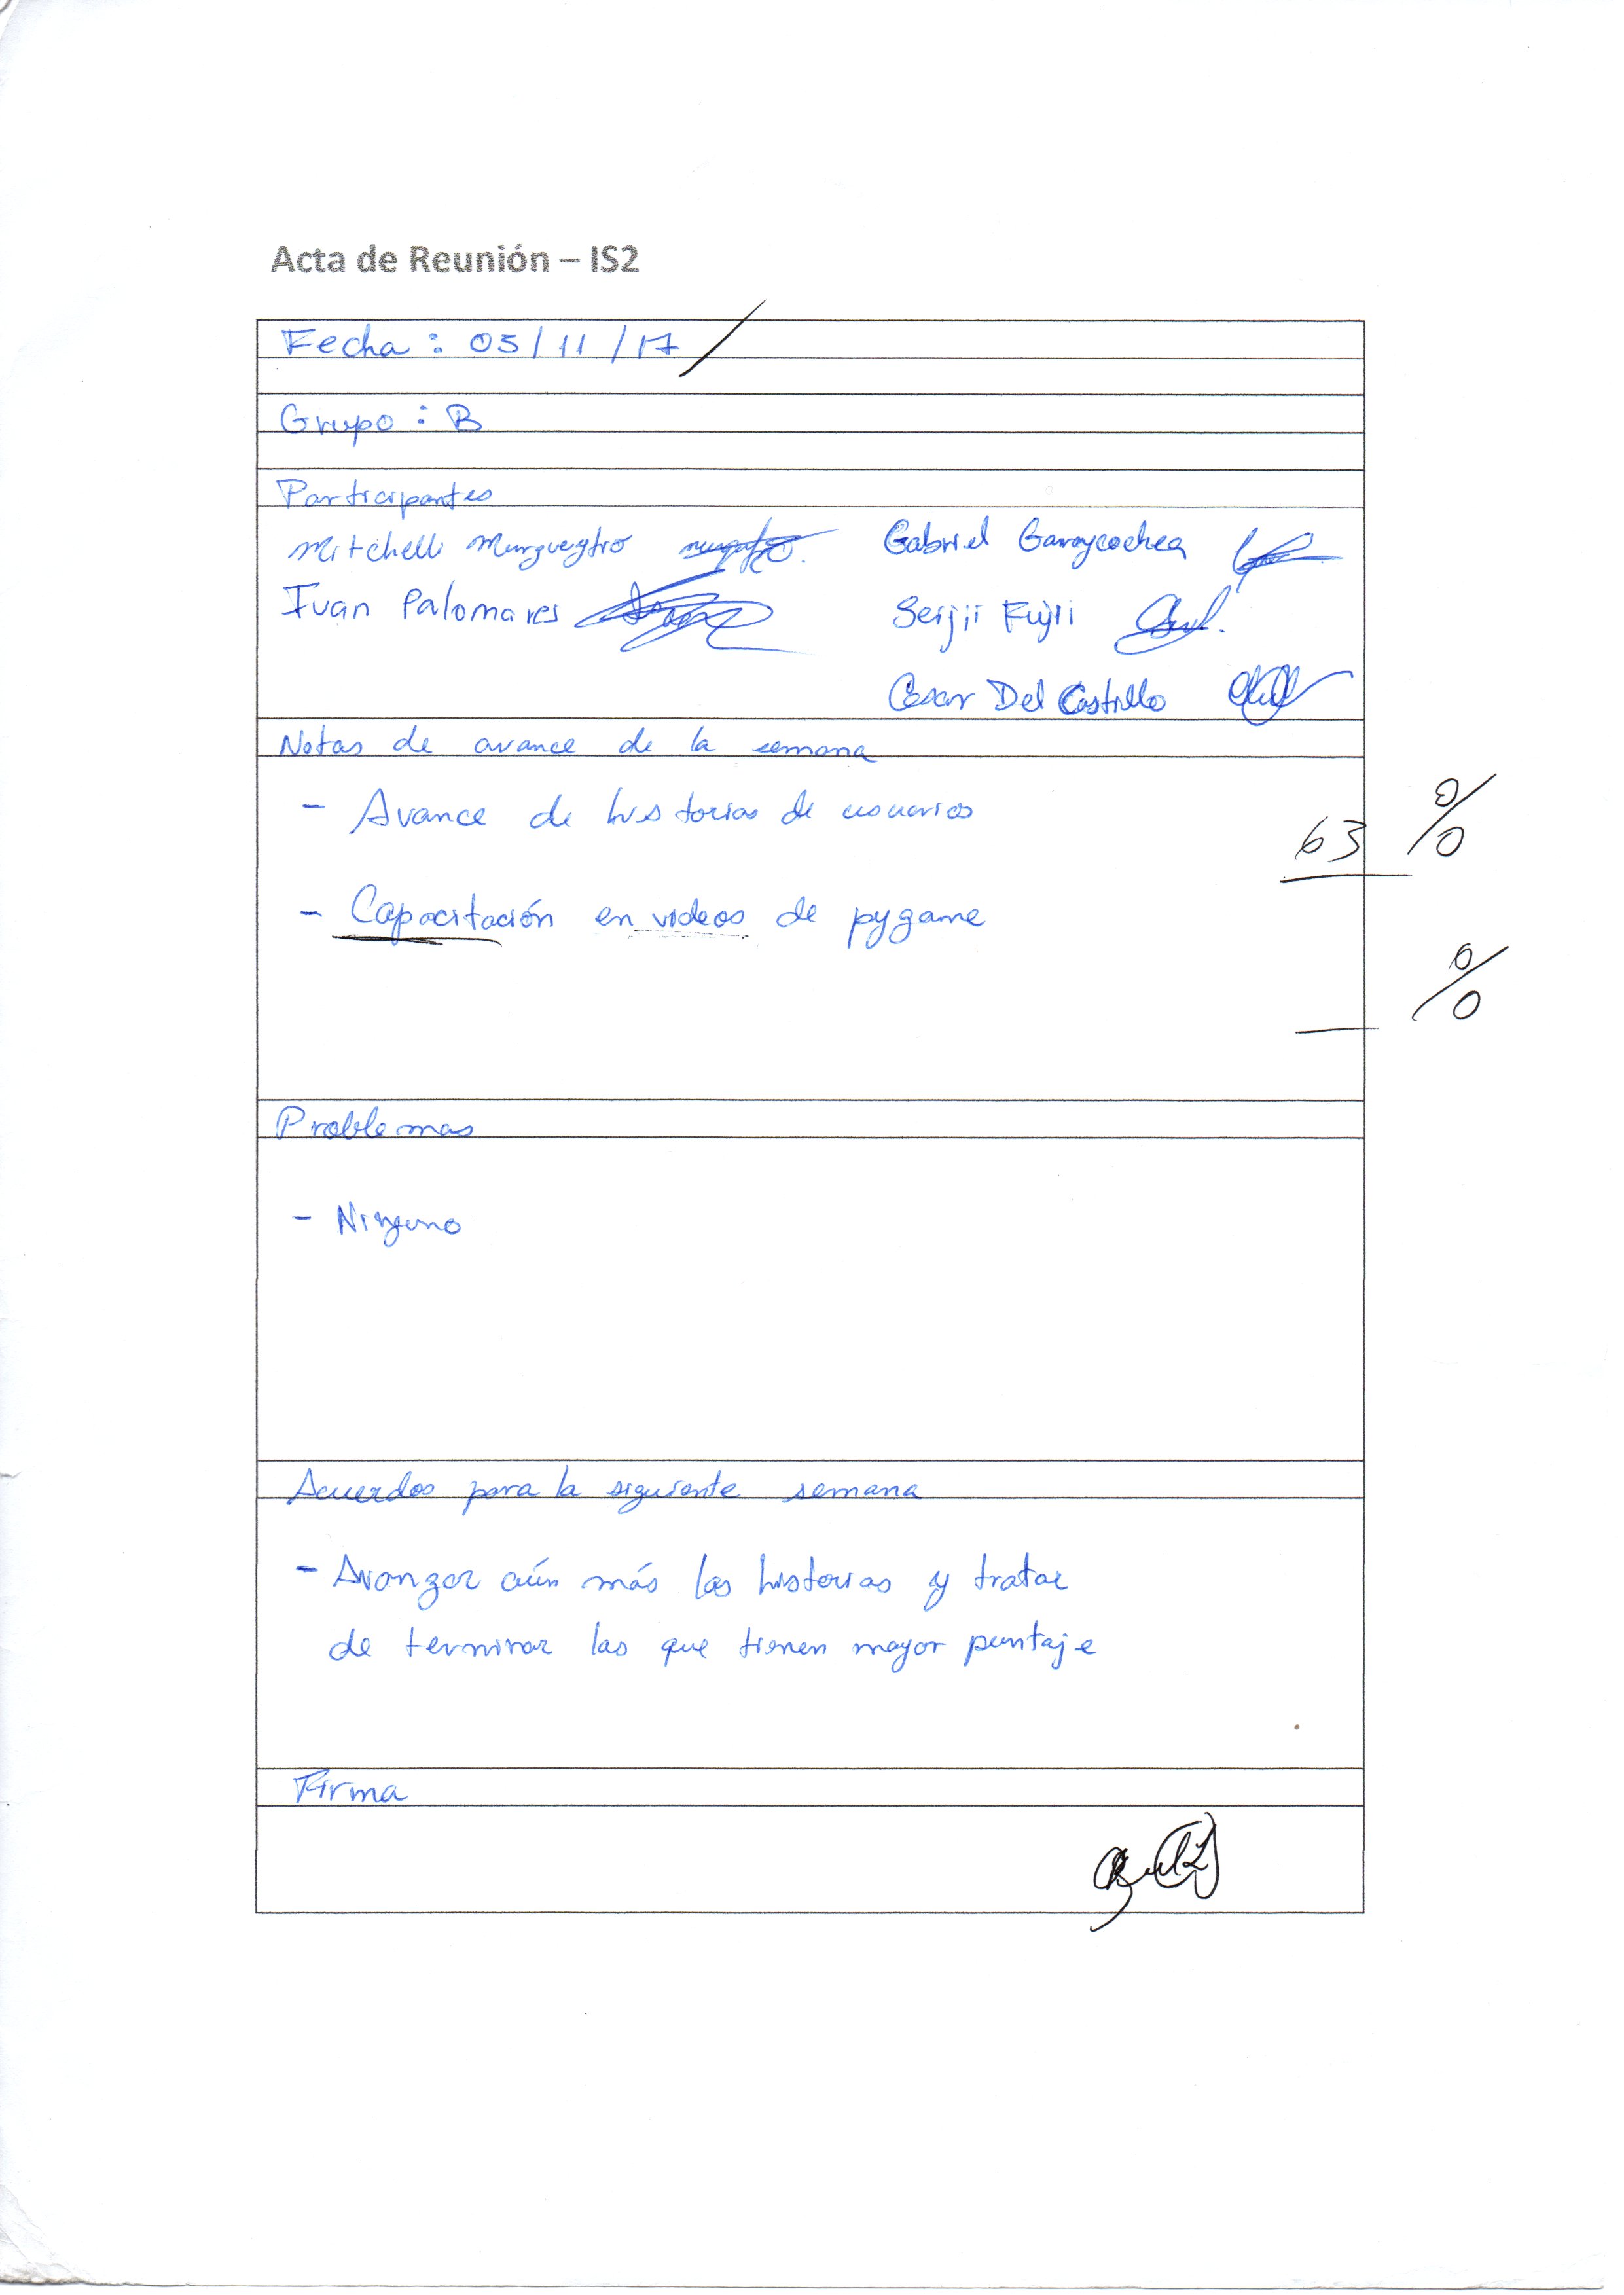 Acta de Reunión – IS2
Fecha : 05/11/17
Grupo : B
Participantes
Mitchelli Murgueytio Gabriel Garaycochea
Ivan Palomares Seijii Fujii
Cesar Del Castillo
Notas de avance de la semana
- Avance de historias de usuarios
63 %
- Capacitación en videos de pygame
%
Problemas
- Ninguno
Acuerdos para la siguiente semana
- Avanzar aún más las historias y tratar
de terminar las que tienen mayor puntaje
Firma